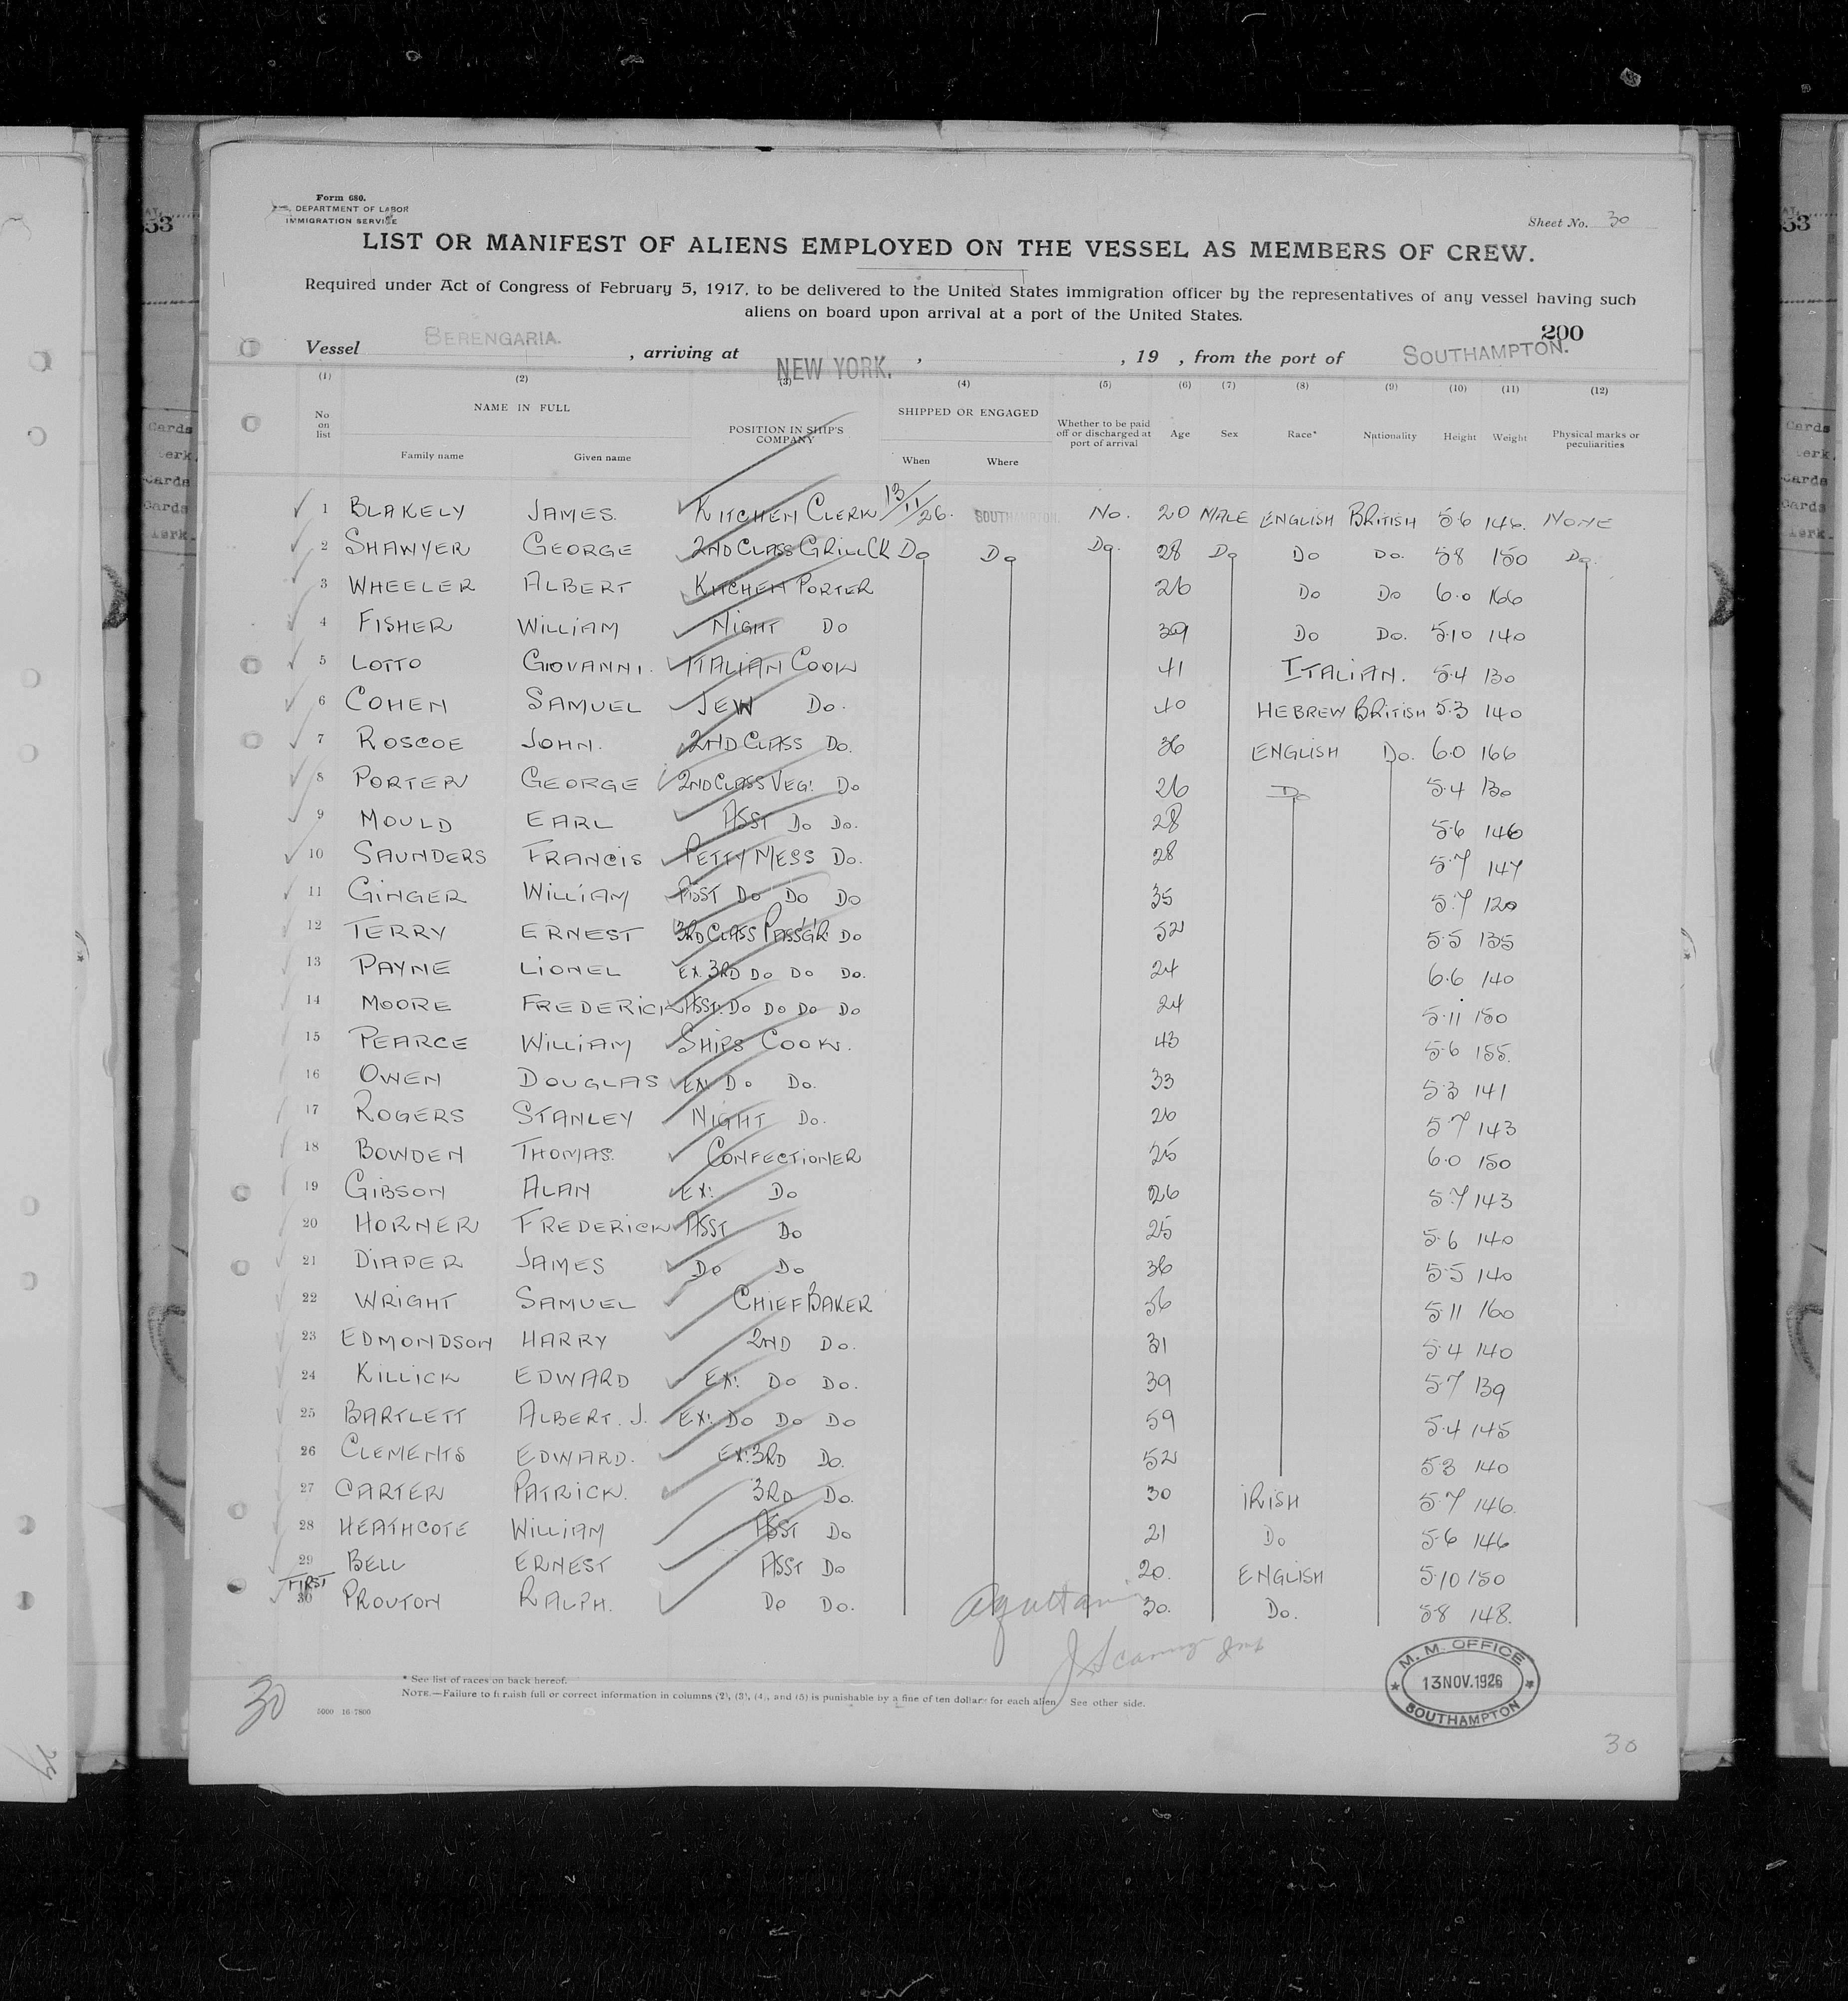 Form 680.
DEPARTMENT OF LABOR
IMMIGRATION SERVICE
Sheet No. 30
LIST OR MANIFEST OF ALIENS EMPLOYED ON THE VESSEL AS MEMBERS OF CREW.
Required under Act of Congress of February 5, 1917, to be delivered to the United States immigration officer by the representatives of any vessel having such
aliens on board upon arrival at a port of the United States.
200
Vessel BERENGARIA. , arriving at NEW YORK. , , 19 , from the port of SOUTHAMPTON.
(1) (2) (3) (4) (5) (6) (7) (8) (9) (10) (11) (12)
No on list NAME IN FULL Family name Given name POSITION IN SHIP'S COMPANY SHIPPED OR ENGAGED When Where Whether to be paid off or discharged at port of arrival Age Sex Race* Nationality Height Weight Physical marks or peculiarities
1 BLAKELY JAMES. KITCHEN CLERK 13/11/26. SOUTHAMPTON. No. 20 MALE ENGLISH BRITISH 5 6 146. NONE
2 SHAWYER GEORGE 2ND CLASS GRILL CK Do Do Do. 28 Do Do Do. 5 8 150 Do.
3 WHEELER ALBERT KITCHEN PORTER 26 Do Do 6.0 166
4 FISHER WILLIAM NIGHT Do 39 Do Do. 5.10 140
5 LOTTO GIOVANNI. ITALIAN COOK 41 ITALIAN. 5.4 130
6 COHEN SAMUEL JEW Do. 40 HEBREW BRITISH 5.3 140
7 ROSCOE JOHN. 2ND CLASS Do. 36 ENGLISH Do. 6.0 166
8 PORTER GEORGE 2ND CLASS VEG: Do 26 Do 5.4 130
9 MOULD EARL ASST Do Do. 28 5.6 146
10 SAUNDERS FRANCIS PETTY MESS Do. 28 5.7 147
11 GINGER WILLIAM ASST Do Do Do 35 5.7 120
12 TERRY ERNEST 3RD CLASS PASSGR Do 52 5.5 135
13 PAYNE LIONEL EX. 3RD Do Do Do. 24 6.6 140
14 MOORE FREDERICK ASST. Do Do Do Do 24 5.11 150
15 PEARCE WILLIAM SHIPS COOK. 43 5.6 155.
16 OWEN DOUGLAS EX Do Do. 33 5.3 141
17 ROGERS STANLEY NIGHT Do. 26 5 7 143
18 BOWDEN THOMAS. CONFECTIONER 25 6.0 150
19 GIBSON ALAN EX: Do 26 5.7 143
20 HORNER FREDERICK ASST Do 25 5.6 140
21 DIAPER JAMES Do Do 36 5.5 140
22 WRIGHT SAMUEL CHIEF BAKER 56 5.11 160
23 EDMONDSON HARRY 2ND Do. 31 5.4 140
24 KILLICK EDWARD EX: Do Do. 39 5.7 139
25 BARTLETT ALBERT. J. EX: Do Do Do 59 5.4 145
26 CLEMENTS EDWARD. EX: 3RD Do. 52 5 3 140
27 CARTER PATRICK. 3RD Do. 30 IRISH 5.7 146.
28 HEATHCOTE WILLIAM ASST Do 21 Do 5.6 146
29 BELL ERNEST ASST Do 20. ENGLISH 5.10 150
FIRST
30 PROUTON RALPH. Do Do. 30. Do. 5 8 148.
* See list of races on back hereof.
NOTE.—Failure to furnish full or correct information in columns (2), (3), (4), and (5) is punishable by a fine of ten dollars for each alien. See other side.
30
M. M. OFFICE
13 NOV. 1926
SOUTHAMPTON
30